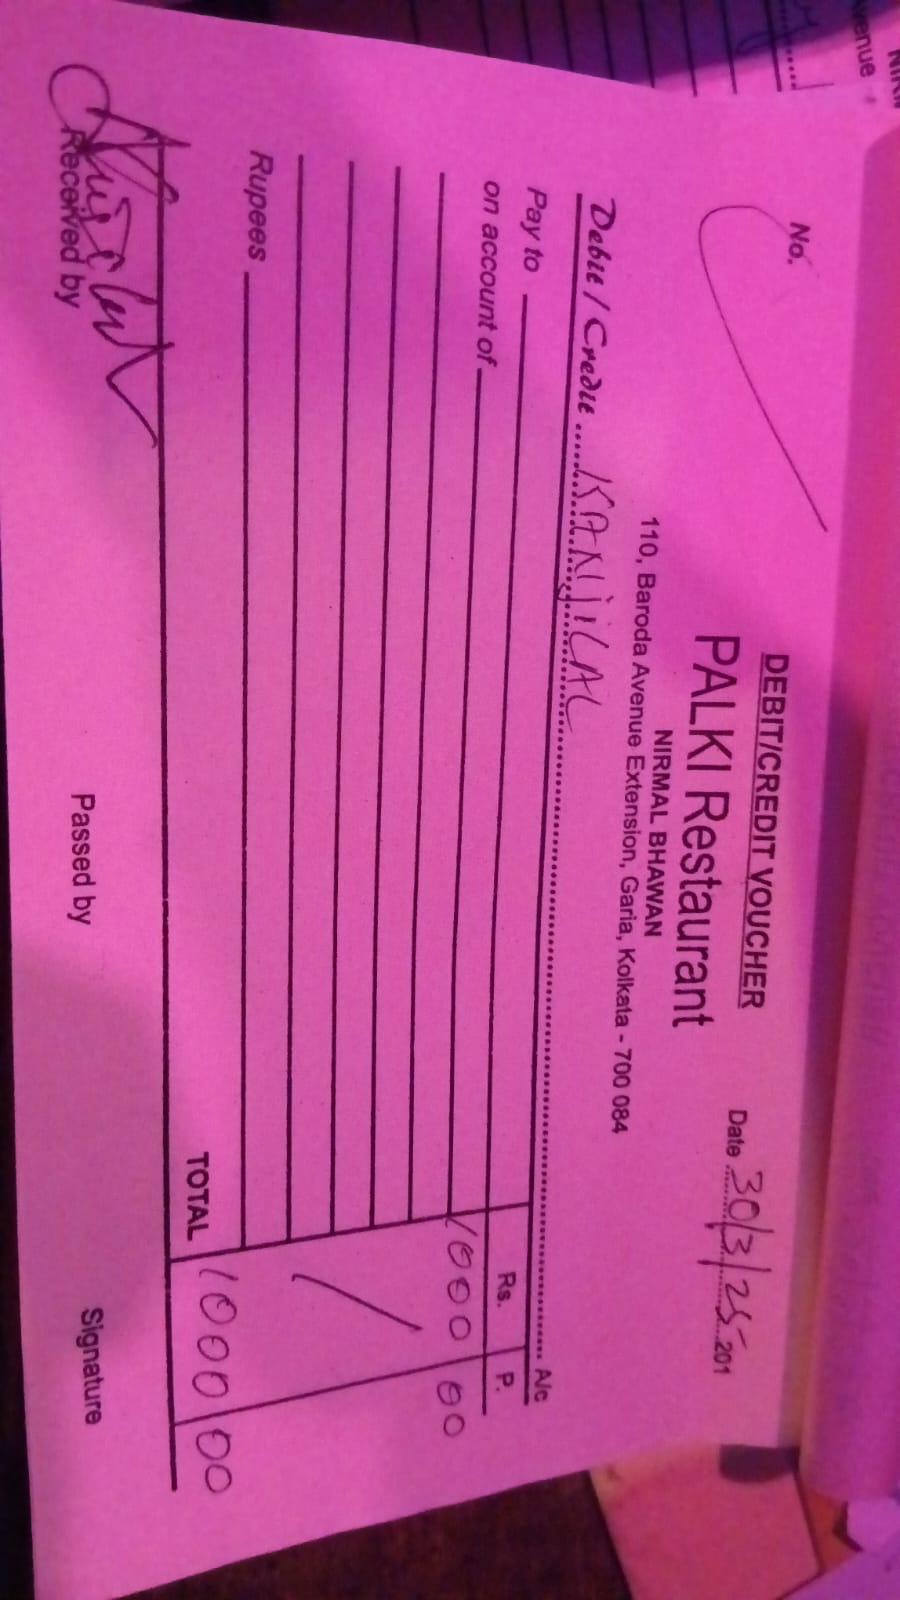 No.
DEBIT/CREDIT VOUCHER
PALKI Restaurant
NIRMAL BHAWAN
110, Baroda Avenue Extension, Garia, Kolkata - 700 084
Date 30/3/25 201
Debit / Credit KANJILAL A/c
Pay to Rs. P.
on account of 1000 00
Rupees
TOTAL 1000 00
Received by Passed by Signature
venue